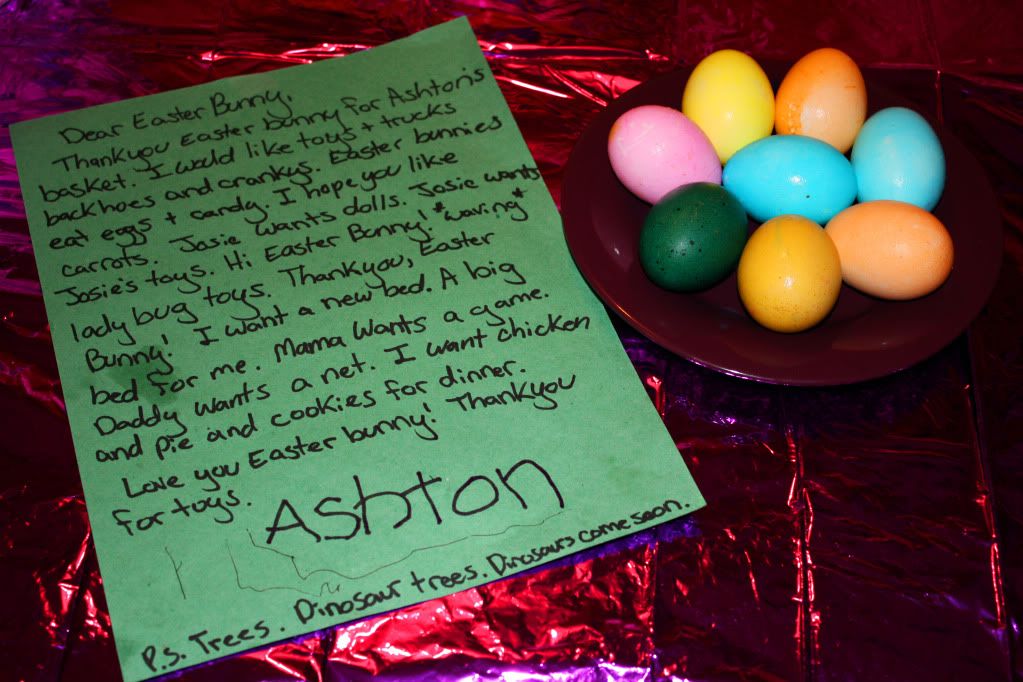 Dear Easter Bunny,
Thankyou Easter bunny for Ashton's
basket. I would like toys + trucks
backhoes and crankys. Easter bunnies
eat eggs + candy. I hope you like
carrots. Josie wants dolls. Josie wants
Josie's toys. Hi Easter Bunny! *waving*
lady bug toys. Thankyou, Easter
Bunny! I want a new bed. A big
bed for me. Mama wants a game.
Daddy wants a net. I want chicken
and pie and cookies for dinner.
Love you Easter bunny! Thankyou
for toys.
Ashton
P.s. Trees. Dinosaur trees. Dinosaurs come soon.